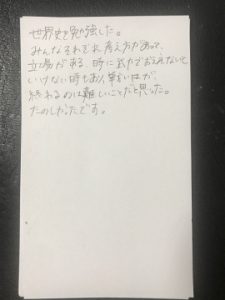 世界史を勉強した。
みんなそれぞれ考え方があって、
立場がある、時に武力でおさえないと
いけない時もあり、争いはが、
終わるのは難しいことだと思った。
たのしかったです。